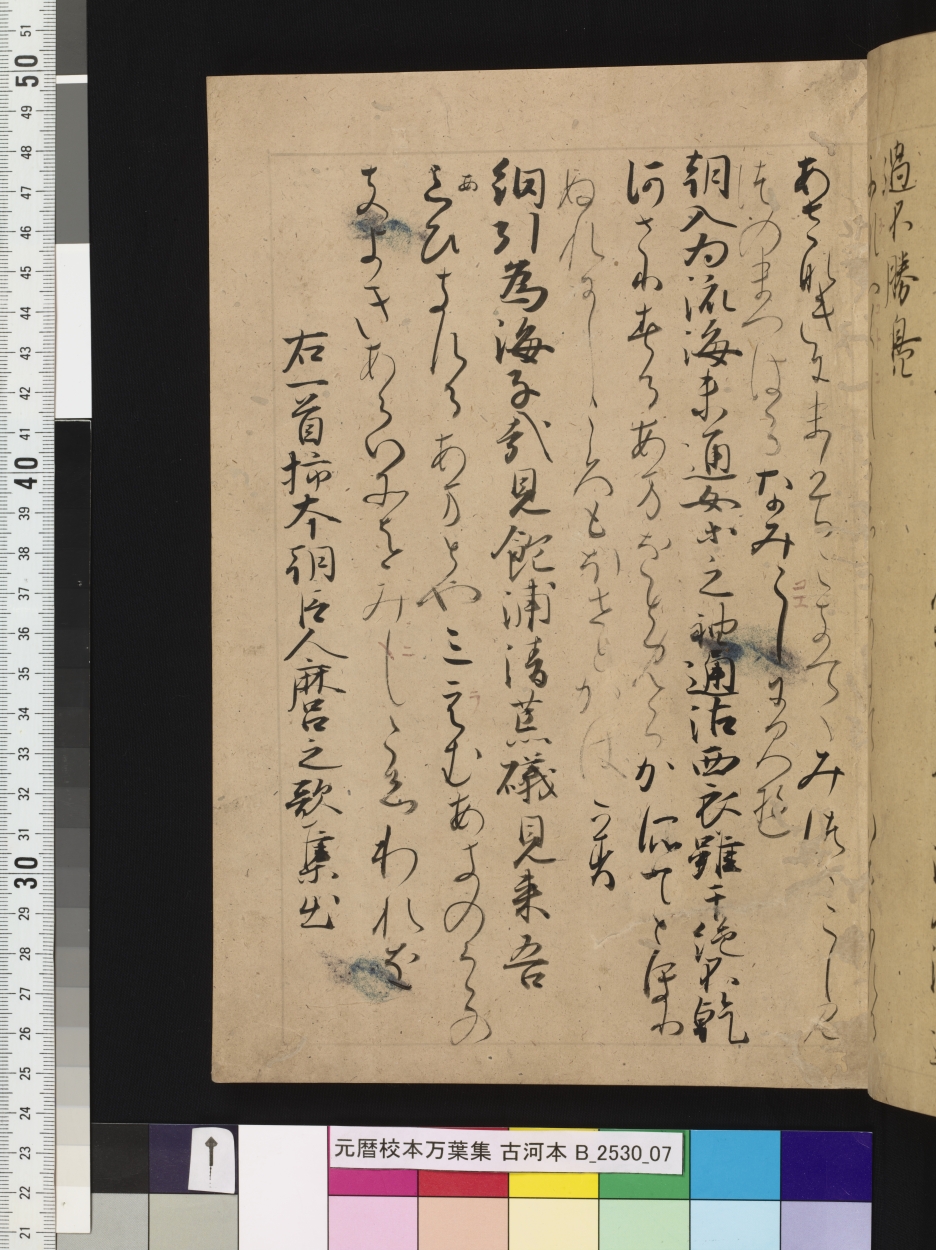 過不勝鳧
あさなきにまかちこきいてゝみつゝこしみ
つのまつはらなみこしにみゆ
朝入為流海未通女等之袖通沾西衣雖干跡不乾
あさりするあまをとめらかそてとほり
ぬれにしころもほせとかはかす
網引為海子哉見飽浦清荒礒見来吾
あひきするあまとやみえむあまのうらの
きよきあらいそをみしこしわれを
右一首柿本朝臣人麻呂之歌集出
元暦校本万葉集 古河本 B_2530_07